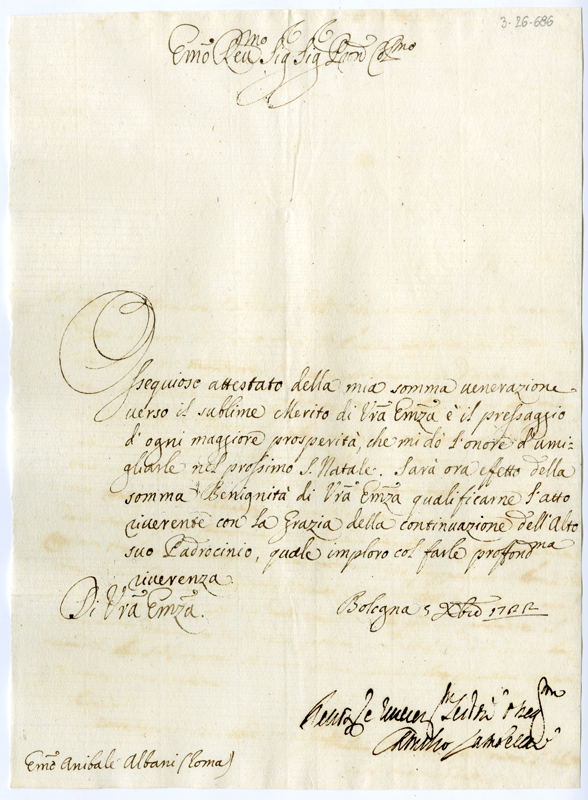 3-26-686
Emõ Reu.mo Sig Sig Pron Colmo
Ossequioso attestato della mia somma uenerazione
uerso il sublime Merito di Vrã Emzã è il pressaggio
d'ogni maggiore prosperità, che mi dò l'onore d'umi-
gliarle nel prossimo S. Natale. Sarà ora effetto della
somma Benignità di Vrã Emzã qualificarne l'atto
riuerente con la Grazia della continuazione dell'Alto
suo Padrocinio, quale imploro col farle profondma
riuerenza
Di Vrã Emzã.
Bologna 5 Xbre
Emõ Anibale Albani (Roma)